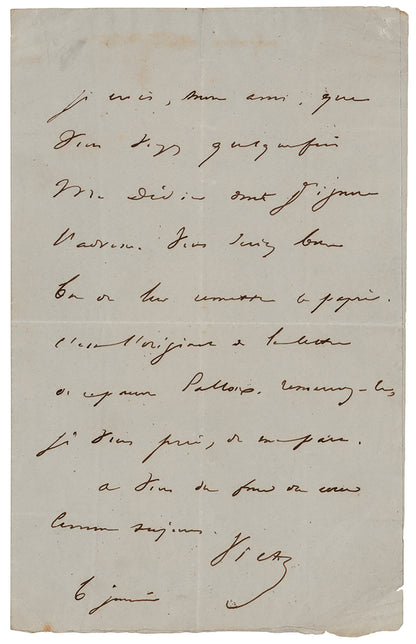 je crois, mon ami, que
vous voyez quelquefois
Mr Didier dont j'ignore
l'adresse. Vous seriez bien
bon de lui remettre ce papier.
c'est l'original de la lettre
de ce pauvre Pallois. remerciez-le,
je vous prie, de ma part.
a vous du fond du cœur
comme toujours.
Victor
6 janvier